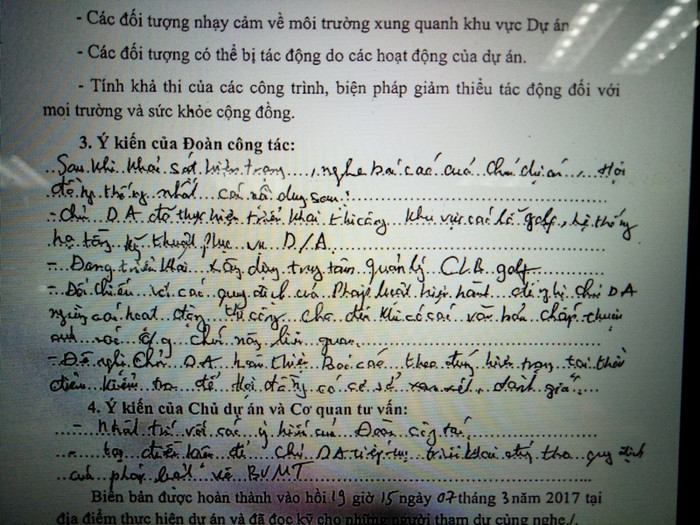 - Các đối tượng nhạy cảm về môi trường xung quanh khu vực Dự án
- Các đối tượng có thể bị tác động do các hoạt động của dự án.
- Tính khả thi của các công trình, biện pháp giảm thiểu tác động đối với
môi trường và sức khỏe cộng đồng.
3. Ý kiến của Đoàn công tác:
Sau khi khảo sát hiện trạng, nghe báo cáo của Chủ dự án, Hội
đồng thống nhất các nội dung sau:
- Chủ D.A đã thực hiện triển khai thi công khu vực các lỗ golf, hệ thống
hạ tầng kỹ thuật phục vụ D/A.
- Đang triển khai xây dựng trung tâm quản lý CLB golf
- Đối chiếu với các quy định của Pháp luật hiện hành đề nghị chủ DA
ngừng các hoạt động thi công cho đến khi có các văn bản chấp thuận
của các chức năng liên quan.
- Đề nghị Chủ D.A hoàn thiện Báo cáo theo đúng hiện trạng tại thời
điểm kiểm tra để Hội đồng có cơ sở xem xét, đánh giá.
4. Ý kiến của Chủ dự án và Cơ quan tư vấn:
- Nhất trí với các ý kiến của Đoàn công tác
- tạo điều kiện để Chủ DA tiếp tục triển khai đúng theo quy định
của pháp luật về BVMT.
Biên bản được hoàn thành vào hồi 19 giờ 15 ngày 07 tháng 3 năm 2017 tại
địa điểm thực hiện dự án và đã đọc kỹ cho những người tham dự cùng nghe./.